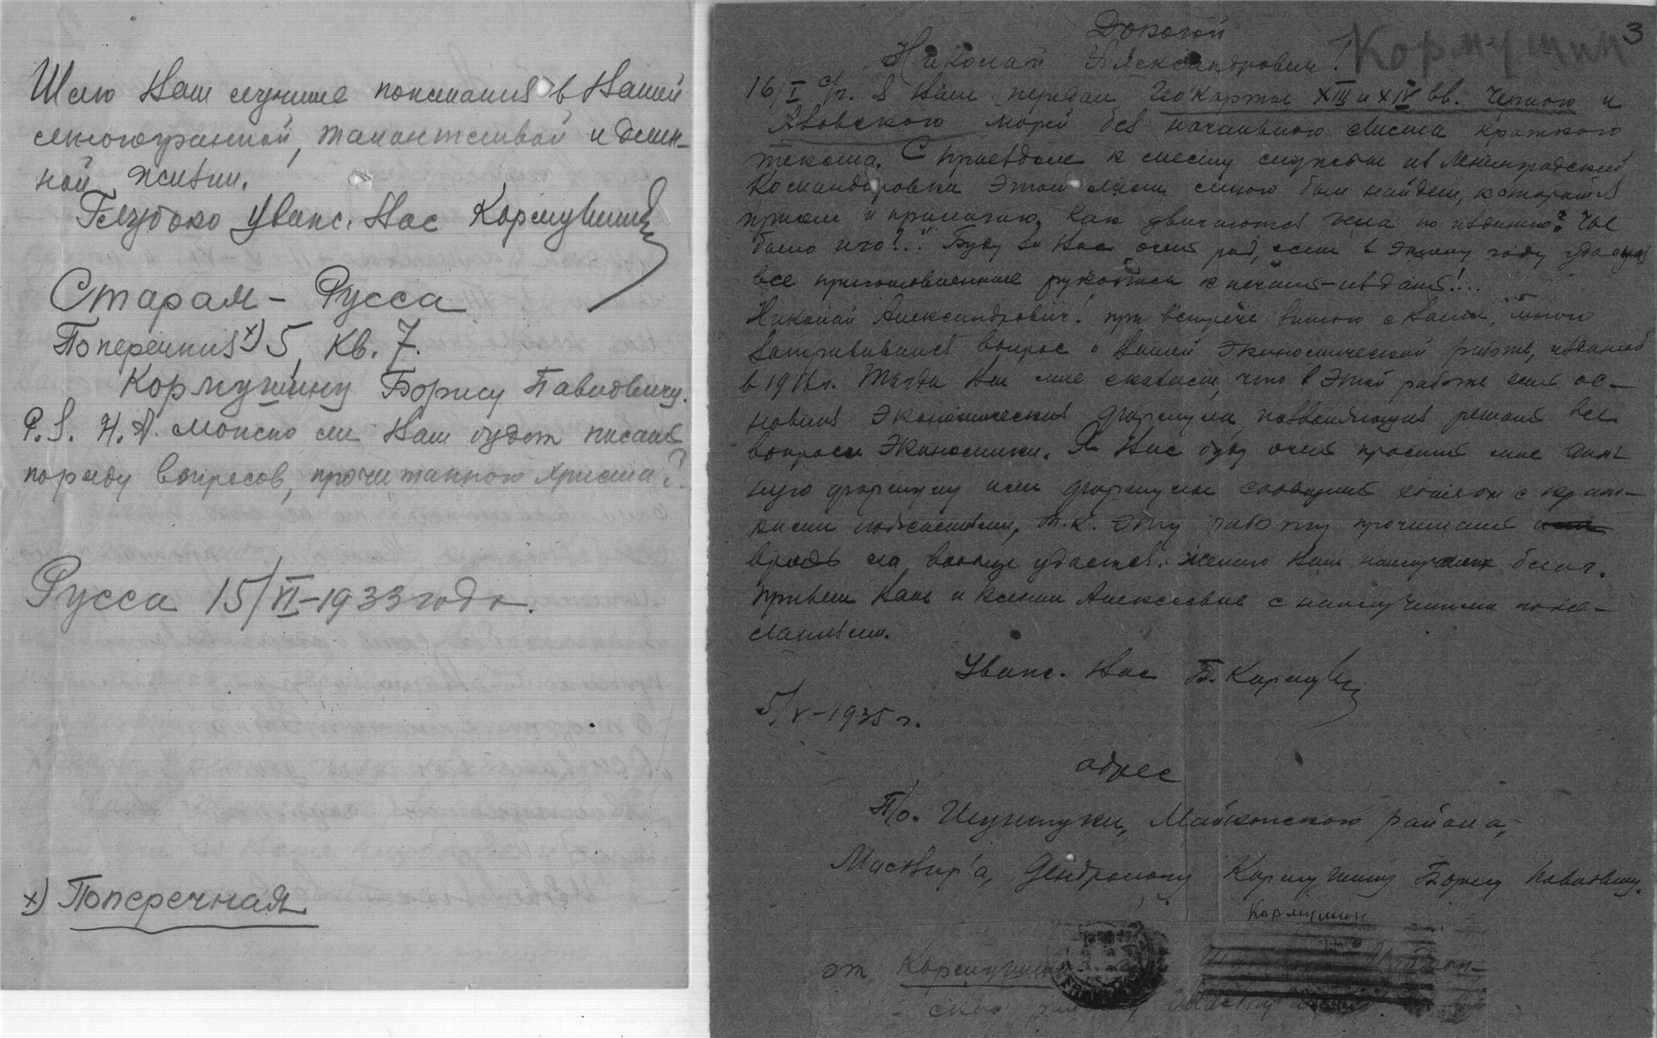 Шлю Вам лучшие пожелания в Вашей
многогранной, талантливой и
ной жизни.
Глубоко уваж. Вас Кормушин
Старая – Русса
Поперечная х) 5, кв. 7.
Кормушину Борису Павловичу.
P.S. Н.А. можно ли Вам будет писать
по ряду вопросов, прочитанного Христа?
Русса 15/VI–1933 года.
х) Поперечная
3
Кормушин
Дорогой
Николай Александрович!
16/I с/г. я Вам передал геокарты XIII и XIV вв. Черного и
Азовского морей без начального листа краткого
текста. С приездом к месту службы из Ленинградской
командировки этот лист мною был найден, который я
при сем и прилагаю. Как двигаются дела по изданию? Где
было что?.. Буду за Вас очень рад, если в этому году удастся
все приготовленные рукописи к печати – издать!...
Николай Александрович! при встрече зимою с Вами, мною
затрагивался вопрос о Вашей экономической работе, изданной
в 19 г. Тогда Вы мне сказали, что в этой работе есть ос–
новная экономическая формула позволяющая решать все
вопросы экономики. Я Вас буду очень просить мне дан–
ную формулу или формулы сообщить хотя бы с крат–
кими пояснениями, т.к. эту работу прочитать
вряд ли вообще удастся. Желаю Вам наилучших благ.
Привет Вам и Ксении Алексеевне с наилучшими поже–
ланиями.
Уваж. Вас Б. Кормуш
5/V–1935 г.
адрес
П/о. Шунтуки, Майкопского района,
Майвир'а, Дендрологу Кормушину Борису Павловичу.
Кормушин
от Кормушин